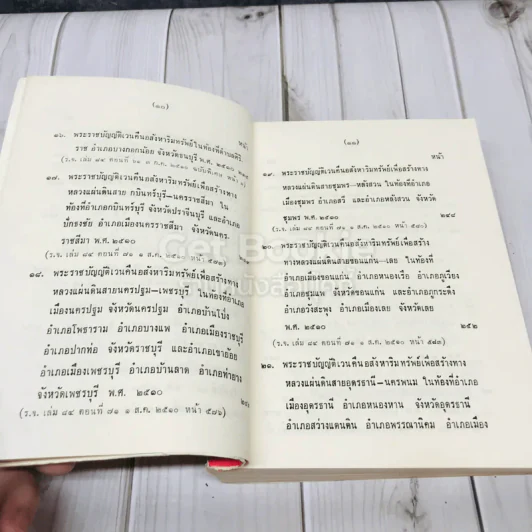 (๑๐)
หน้า
๑๖. พระราชบัญญัติเวนคืนอสังหาริมทรัพย์ในท้องที่ตำบลศิริ
ราช อำเภอบางกอกน้อย จังหวัดธนบุรี พ.ศ. ๒๕๑๐
(ร.จ. เล่ม ๘๔ ตอนที่
๑๗. พระราชบัญญัติเวนคืนอสังหาริมทรัพย์เพื่อสร้างทาง
หลวงแผ่นดินสาย กบินทร์บุรี—นครราชสีมา ใน
ท้องที่อำเภอกบินทร์บุรี จังหวัดปราจีนบุรี และอำเภอ
ปักธงชัย อำเภอเมืองนครราชสีมา จังหวัดนคร-
ราชสีมา พ.ศ. ๒๕๑๐
(ร.จ. เล่ม ๘๔ ตอนที่ ๗๑ ๑ ส.ค. ๒๕๑๐ หน้า
๑๘. พระราชบัญญัติเวนคืนอสังหาริมทรัพย์เพื่อสร้างทาง
หลวงแผ่นดินสายนครปฐม—เพชรบุรี ในท้องที่อำเภอ
เมืองนครปฐม จังหวัดนครปฐม อำเภอบ้านโป่ง
อำเภอโพธาราม อำเภอบางแพ อำเภอเมืองราชบุรี
อำเภอปากท่อ จังหวัดราชบุรี และอำเภอเขาย้อย
อำเภอเมืองเพชรบุรี อำเภอบ้านลาด อำเภอท่ายาง
จังหวัดเพชรบุรี พ.ศ. ๒๕๑๐
(ร.จ. เล่ม ๘๔ ตอนที่ ๗๑ ๑ ส.ค. ๒๕๑๐ หน้า ๕๗๖)
(๑๑)
หน้า
๑๙. พระราชบัญญัติเวนคืนอสังหาริมทรัพย์เพื่อสร้างทาง
หลวงแผ่นดินสายชุมพร—หลังสวน ในท้องที่อำเภอ
เมืองชุมพร อำเภอสวี และอำเภอหลังสวน จังหวัด
ชุมพร พ.ศ. ๒๕๑๐ ๒๔๔
(ร.จ. เล่ม ๘๔ ตอนที่ ๗๑ ๑ ส.ค. ๒๕๑๐ หน้า ๕๘๐)
๒๐. พระราชบัญญัติเวนคืนอสังหาริมทรัพย์เพื่อสร้าง
ทางหลวงแผ่นดินสายขอนแก่น—เลย ในท้องที่
อำเภอเมืองขอนแก่น อำเภอหนองเรือ อำเภอภูเวียง
อำเภอชุมแพ จังหวัดขอนแก่น และอำเภอภูกระดึง
อำเภอวังสะพุง อำเภอเมืองเลย จังหวัดเลย
พ.ศ. ๒๕๑๐ ๒๕๒
(ร.จ. เล่ม ๘๔ ตอนที่ ๗๑ ๑ ส.ค. ๒๕๑๐ หน้า ๕๘๓)
๒๑. พระราชบัญญัติเวนคืนอสังหาริมทรัพย์เพื่อสร้างทาง
หลวงแผ่นดินสายอุดรธานี—นครพนม ในท้องที่อำเภอ
เมืองอุดรธานี อำเภอหนองหาน จังหวัดอุดรธานี
อำเภอสว่างแดนดิน อำเภอพรรณานิคม อำเภอเมือง